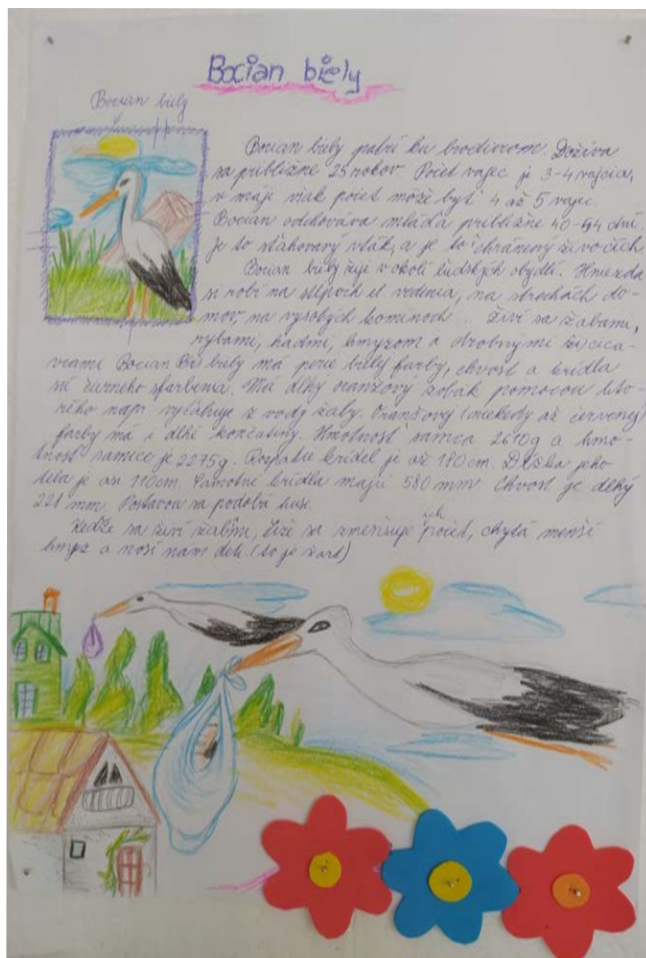 Bocian biely
Bocian biely
Bocian biely patrí ku brodivcom. Dožíva
sa približne 25 rokov Počet vajec je 3-4 vajcia,
v máji však počet može byť 4 až 5 vajec.
Bocian odchováva mláďa približne 40-54 dní.
je to sťahovavý vták, a je to chránený živočích
Bocian biely žije v okolí ľudských obydlí. Hniezda
si robí na stĺpoch el vedenia, na strechách do-
mov, na vysokých komínoch... Živí sa žabami,
rybami, hadmi, hmyzom a drobnými cicav-
cami Bocian biely má perie bielej farby, chvost a krídla
sú čierneho sfarbenia. Má dlhý oranžový zobák pomocou kto-
rého napr vylovuje z vody žaby. Oranžovej (niekedy až červenej)
farby má i dlhé končatiny. Hmotnosť samca 2610g a hmo-
tnosť samice je 2275g. Rozpätie krídel je až 180 cm. Dĺžka jeho
tela je asi 110cm. Samotné krídla majú 580 mm. Chvost je dlhý
228 mm. Postavou sa podobá husi.
Keďže sa živí žabami, čiže sa zmenšuje ich počet, chytá menší
hmyz a nosí nám deti (to je žart)